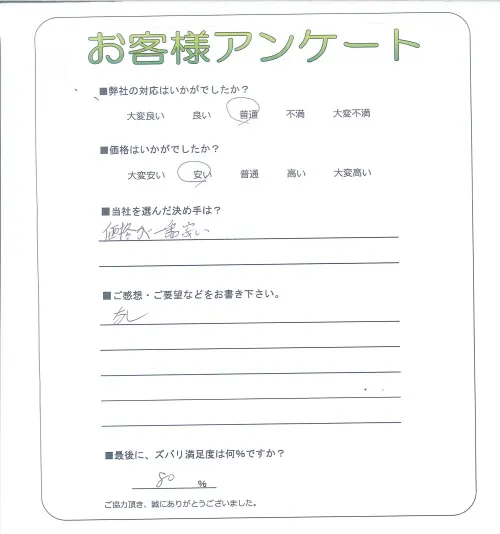 お客様アンケート
■弊社の対応はいかがでしたか？
大変良い 良い 普通 不満 大変不満
■価格はいかがでしたか？
大変安い 安い 普通 高い 大変高い
■当社を選んだ決め手は？
価格が一番安い
■ご感想・ご要望などをお書き下さい。
なし
■最後に、ズバリ満足度は何%ですか？
80 %
ご協力頂き、誠にありがとうございました。